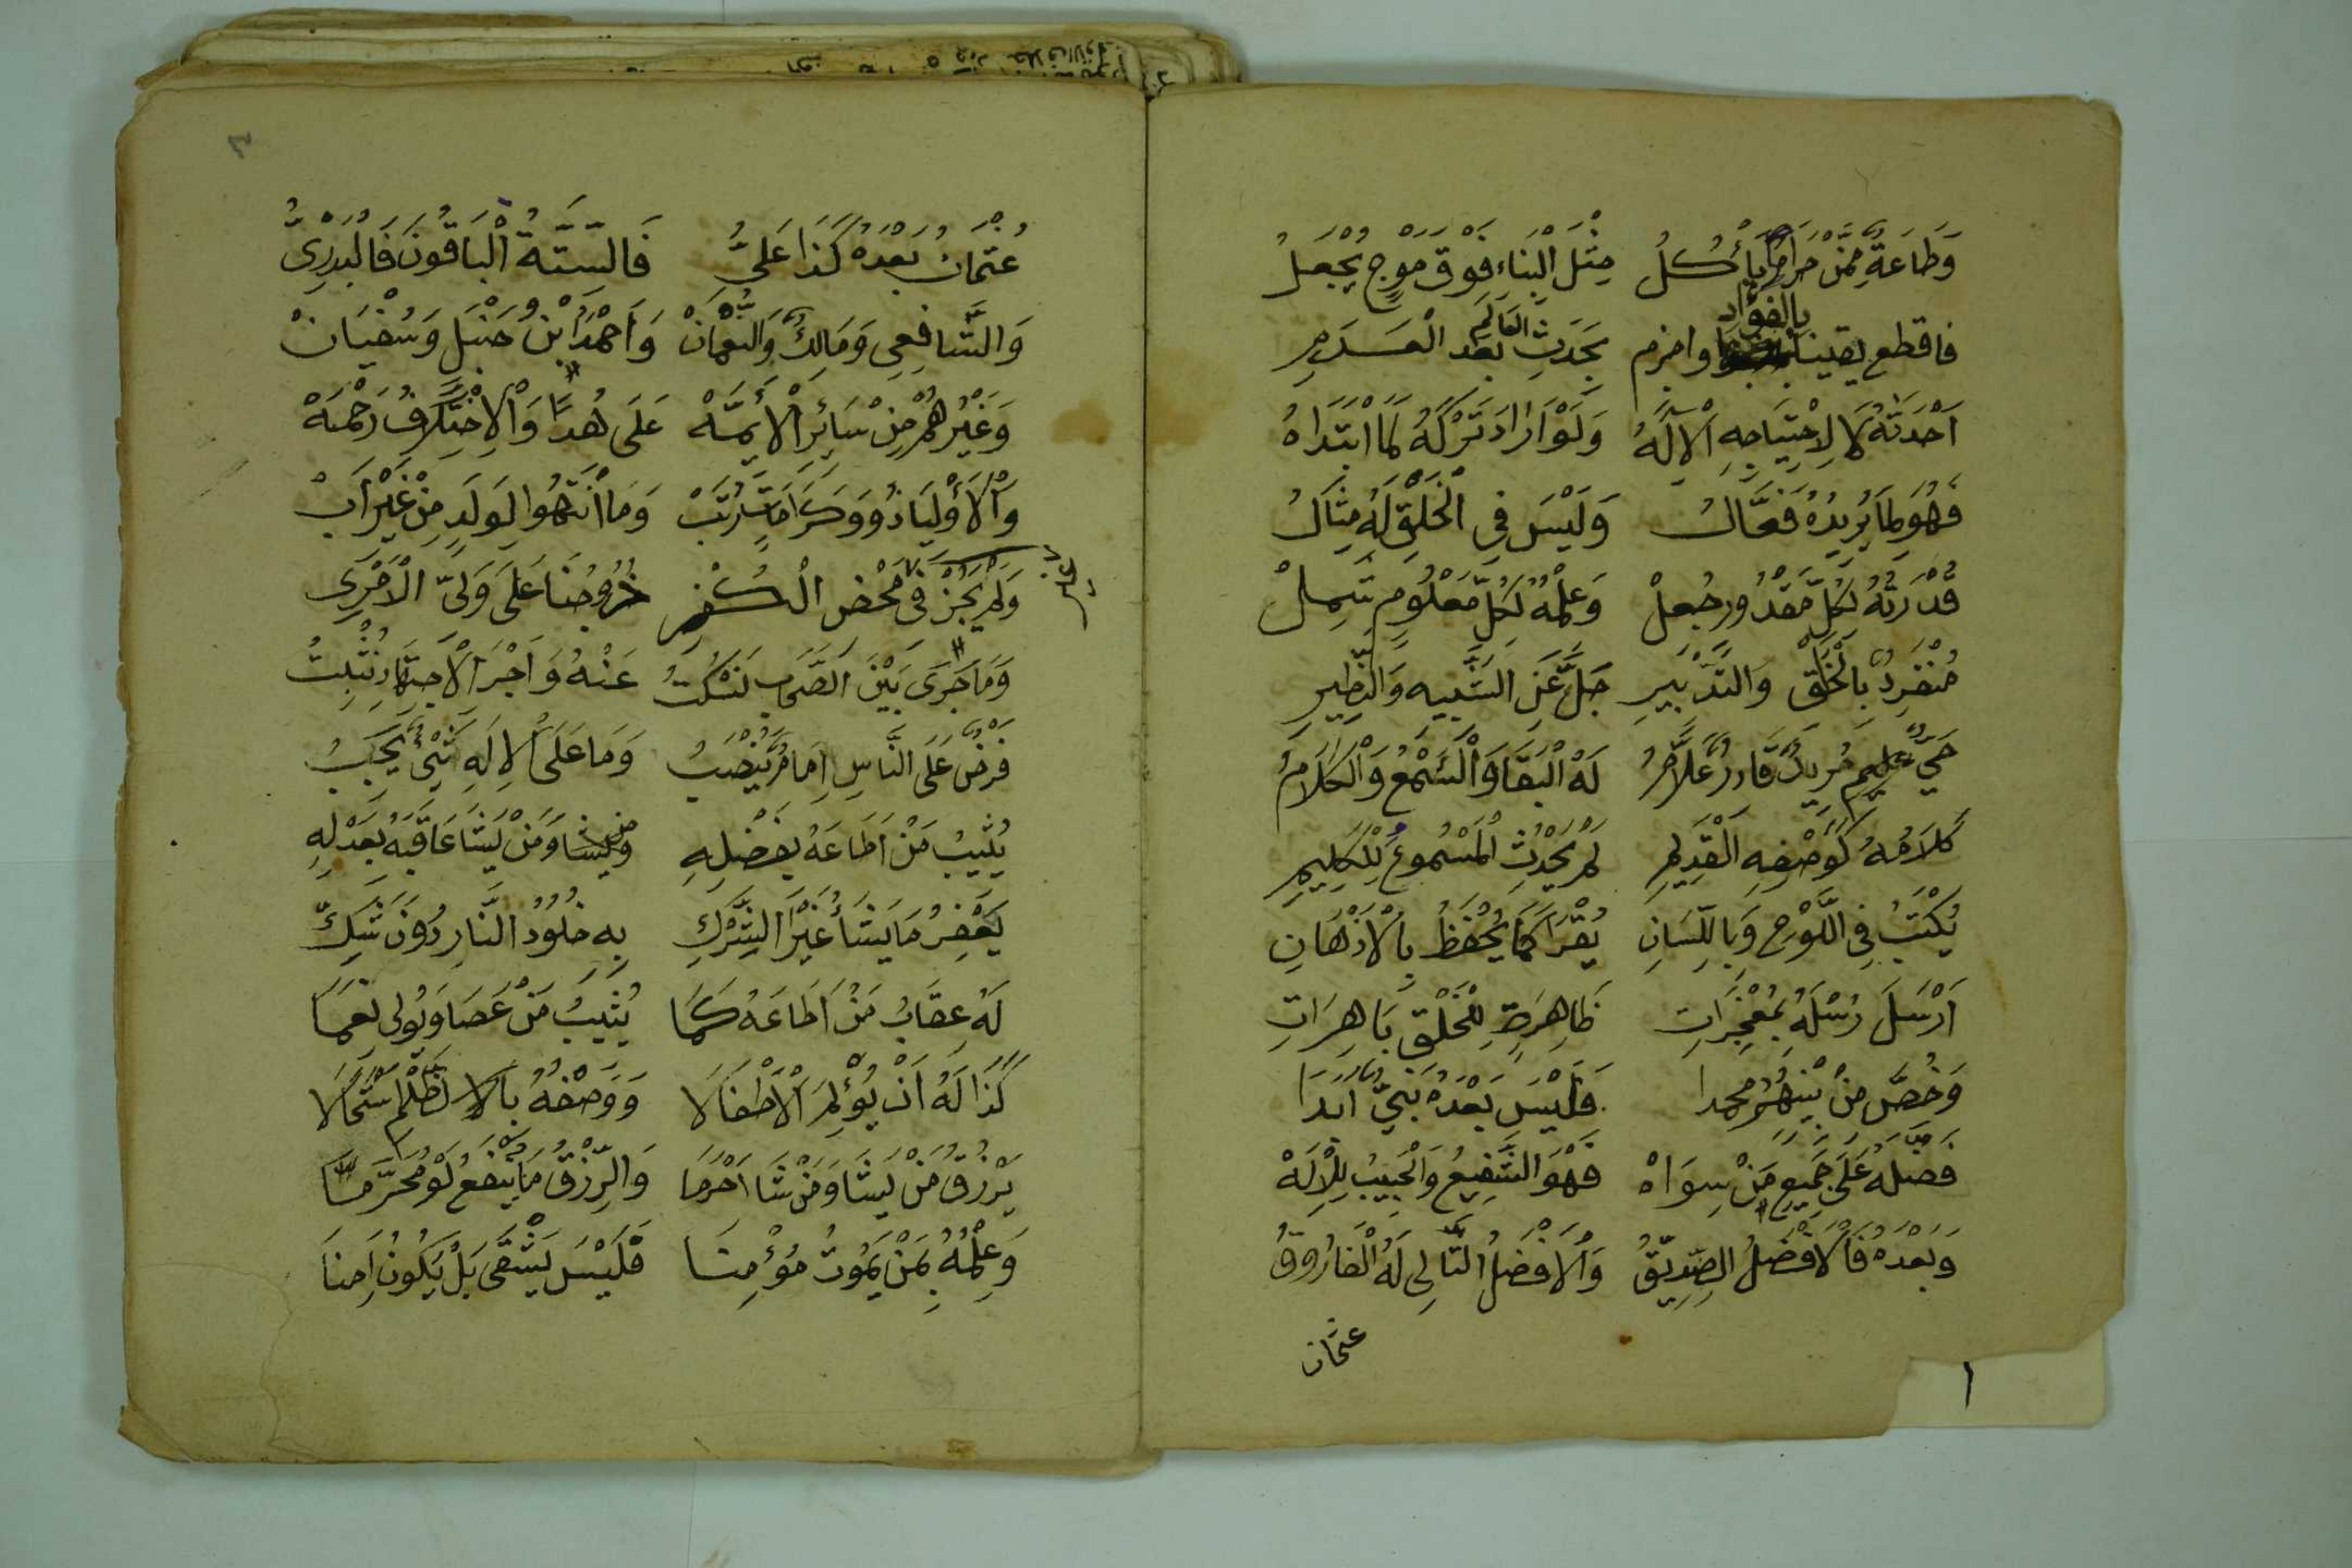 وَطَاعَةٌ مِمَّنْ حَرَامًا يَأْكُلُ مِثْلَ الْبِنَاءِ فَوْقَ مَوْجٍ يُجْعَلُ
فاقطع يقينا بالفؤاد واجزم بحَدَثِ العَالَمِ بَعْد الْعَدَمِ
اَحْدَثَهُ لَا لِاحْتِيَاجِهِ الْاِلَهُ وَلَوْ اَرَادَ تَرْكَهُ لَمَا ابْتَدَاهُ
فَهُوَ لِمَا يُرِيدُهُ فَعَّالُ وَلَيْسَ فِي الْخَلْقِ لَهُ مِثَالُ
قُدْرَتُهُ لِكُلِّ مَقْدُورٍ جُعِلْ وَعِلْمُهُ لِكُلِّ مَعْلُومٍ شَمِلْ
مُنْفَرِدٌ بِالْخَلْقِ وَالتَّدْبِيرِ جَلَّ عَنِ الشَّبِيهِ وَالنَّظِيرِ
حَيٌّ عَلِيمٌ مُرِيدٌ قَادِرٌ عَلَّامُ لَهُ الْبَقَا وَالسَّمْعُ وَالْكَلَامُ
كَلَامُهُ كَوَصْفِهِ الْقَدِيمِ لَمْ يَحْدُثِ الْمَسْمُوعُ لِلْكَلِيمِ
يُكْتَبُ فِي اللَّوْحِ وَبِاللِّسَانِ يُقْرَا كَمَا يُحْفَظُ بِالْاَذْهَانِ
اَرْسَلَ رُسْلَهُ بِمُعْجِزَاتِ ظَاهِرَةٍ لِلْخَلْقِ بَاهِرَاتِ
وَخُصَّ مِنْ بَيْنِهُمُ محمدا فَلَيْسَ بَعْدَهُ نَبِيٌّ اَبَدَا
فَضَّلَهُ عَلَى جَمِيعِ مَنْ سِوَاهْ فَهْوَ الشَّفِيعُ وَالْحَبِيبُ لِلْاِلَهْ
وَبَعْدَهُ فَالْاَفْضَلُ الصِّدِّيقُ وَالْاَفْضَلُ التَّالِي لَهُ الْفَارُوقُ
عثمان
١
عُثْمَانُ بَعْدَهُ كَذَا عَلِيُّ فَالسِّتَّةُ الْبَاقُونَ فَالْبَدْرِيُّ
وَالشَّافِعِي وَمَالِكٌ وَالنُّعْمَانْ وَاَحْمَدُ ابْنُ حَنْبَلٍ وَسُفْيَانْ
وَغَيْرُهُمْ مِنْ سَائِرِ الْاَئِمَّهْ عَلَى هُدًا وَالْاِخْتِلَافُ رَحْمَهْ
وَالْاَوْلِيَا ذُوو كَرَامَاتٍ رُتَبْ وَمَا انْتَهَوْا لِوَلَدٍ مِنْ غَيْرِ اَبْ
وَلَمْ يَجُزْ فِي مَحْضِ الْكُفْرِ خُرُوجُنَا عَلَى وَلِيِّ الْاَمْرِ
وَمَا جَرَى بَيْنَ الصِّحَابِ نَسْكُتُ عَنْهُ وَاَجْرَ الْاِجْتِهَادِ نُثْبِتُ
فَرْضٌ عَلَى النَّاسِ اِمَامٌ يُنْصَبُ وَمَا عَلَى الْاِلَهِ شَيْءٌ يَجِبُ
يُثِيبُ مَنْ اَطَاعَهُ بِفَضْلِهِ وَمَنْ يَشَا عَاقَبَهُ بِعَدْلِهِ
يَغْفِرُ مَا يَشَاءُ غَيْرَ الشِّرْكِ بِهِ خُلُودُ النَّارِ دُونَ شَكِّ
لَهُ عِقَابُ مَنْ اَطَاعَهُ كَمَا يُثِيبُ مَنْ عَصَا وَيُولِي نِعَمَا
كَذَا لَهُ اَنْ يُؤْلِمَ الْاَطْفَالَا وَوَصْفُهُ بِالظُّلْمِ اسْتَحَالَا
يَرْزُقُ مَنْ يَشَا وَمَنْ شَا اَحْرَمَا وَالرِّزْقُ مَا يَنْفَعُ لَوْ مُحَرَّمَا
وَعِلْمُهُ بِمَنْ يَمُوتُ مُؤْمِنَا فَلَيْسَ يَشْقَى بَلْ يَكُونُ اَمِنَا